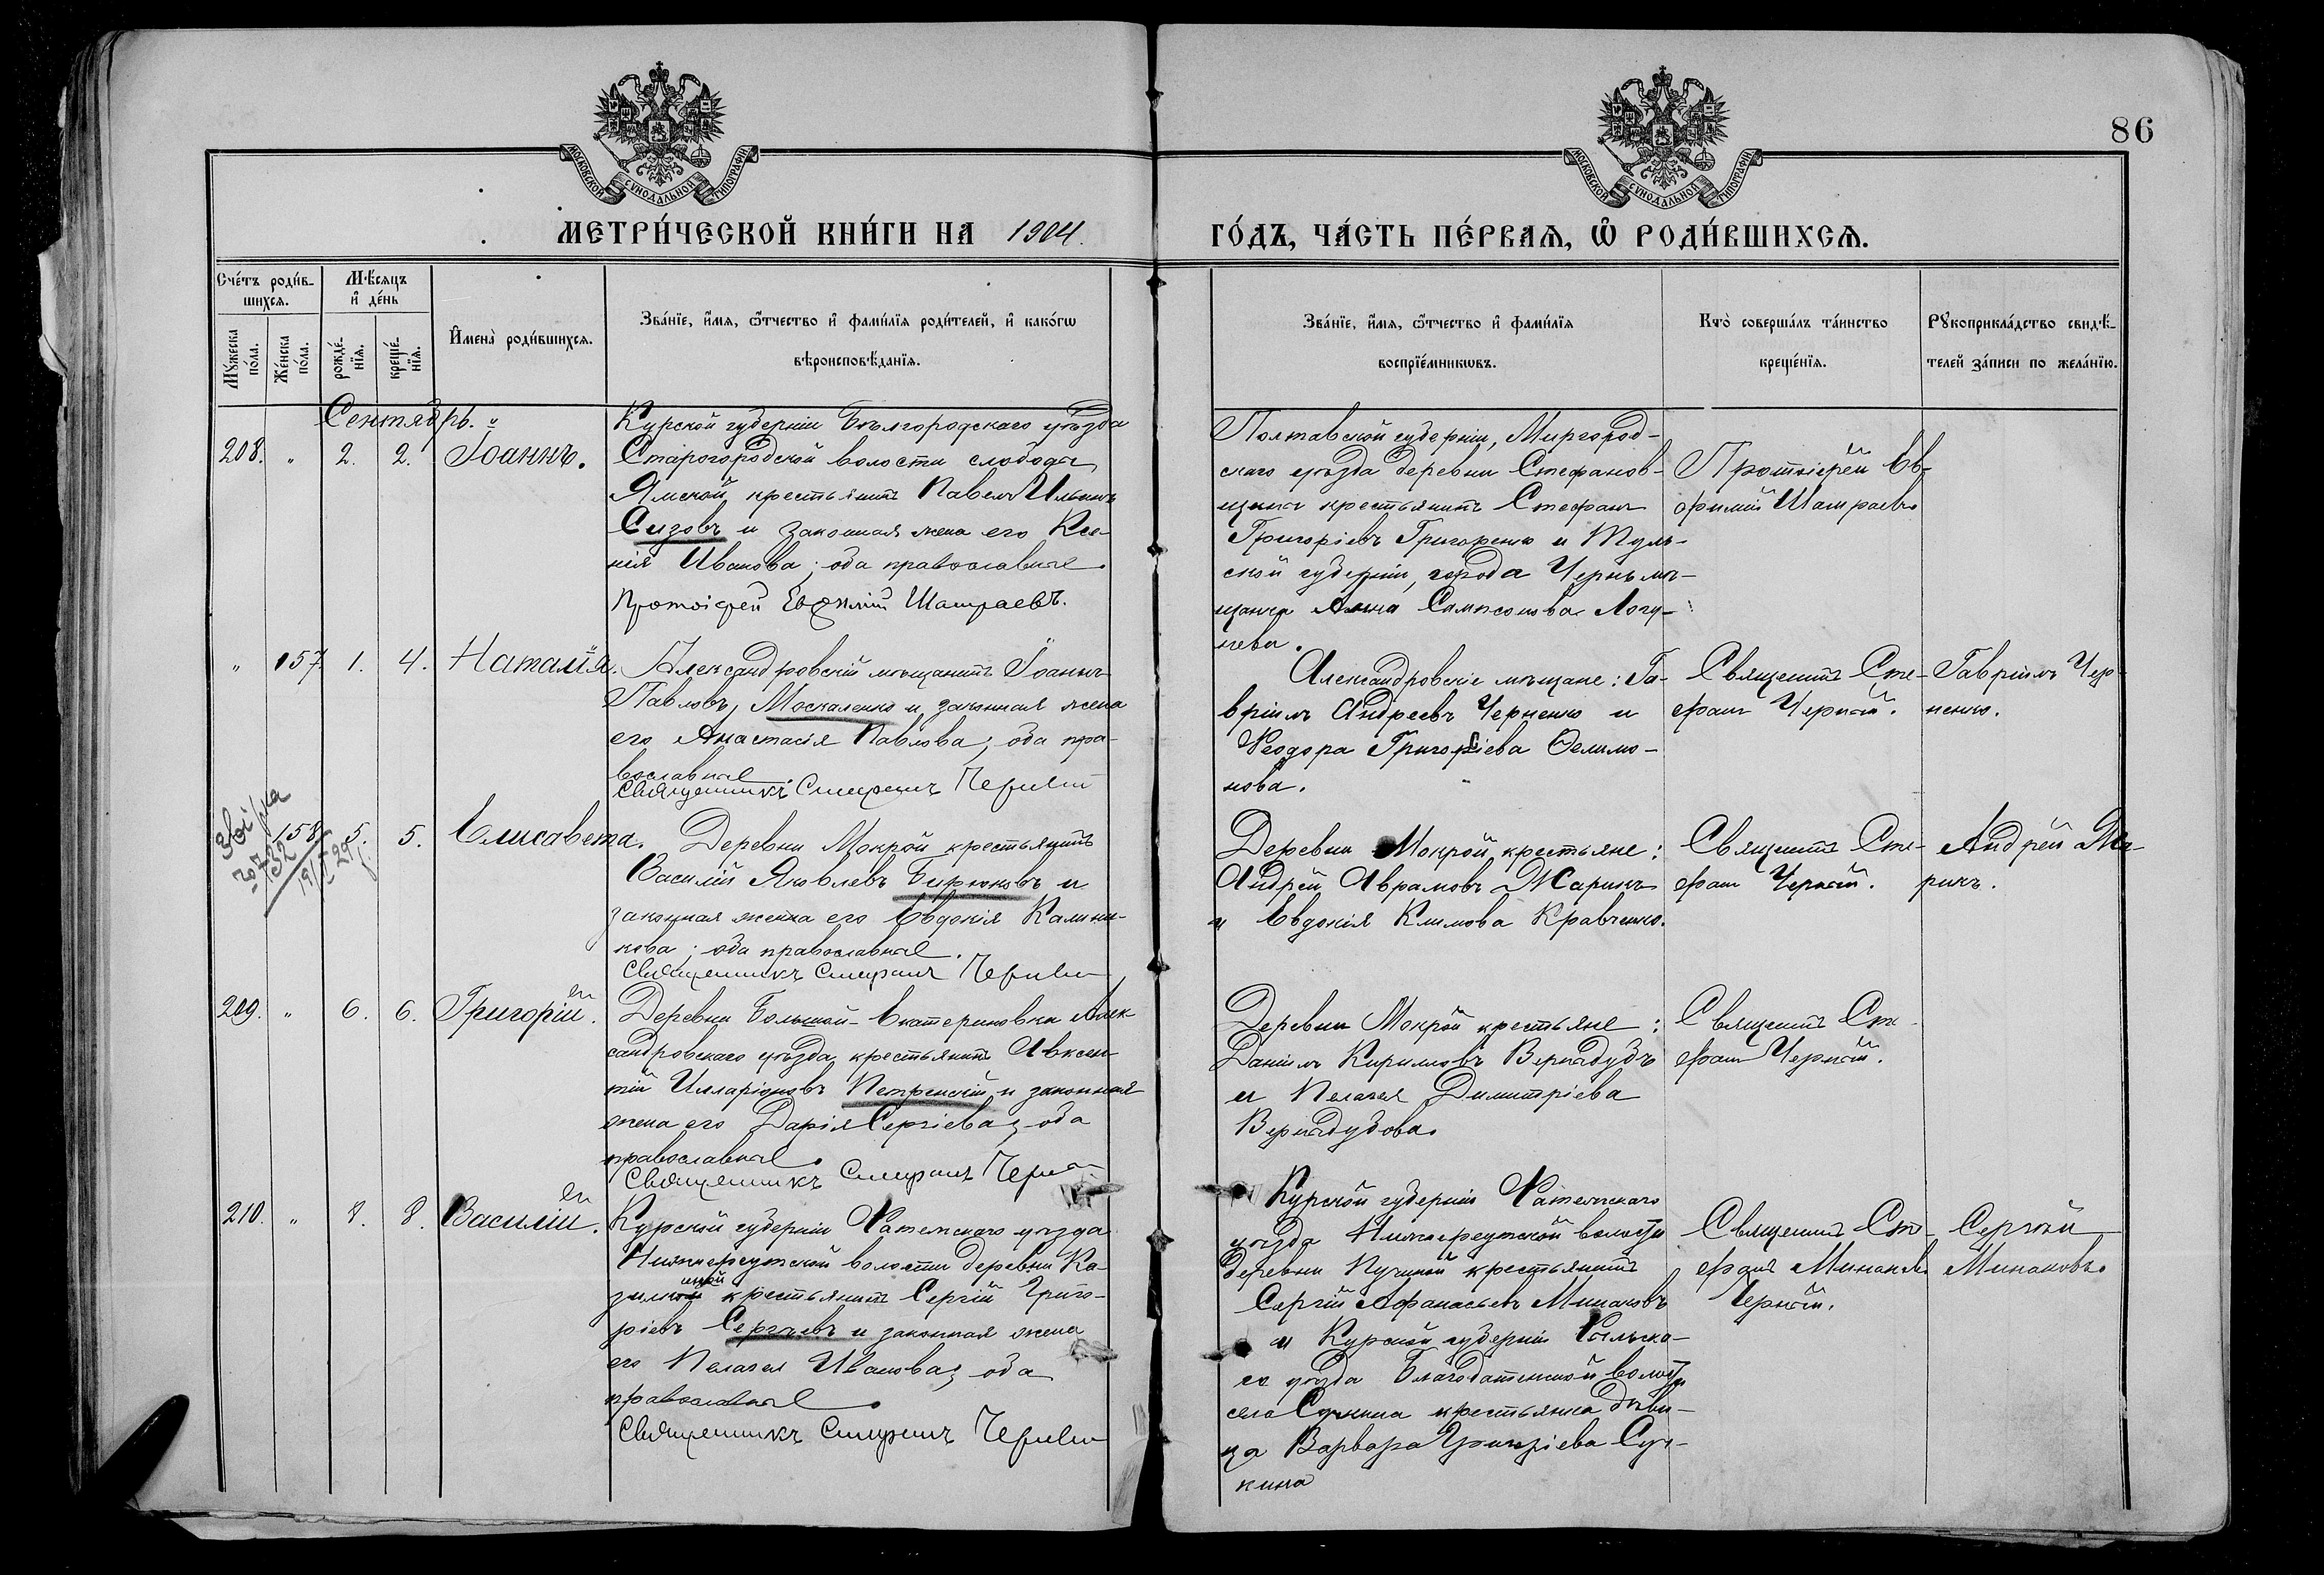 86
МОСКОВСКОЙ СѴНОДАЛЬНОЙ ТИПОГРАФІИ
МОСКОВСКОЙ СѴНОДАЛЬНОЙ ТИПОГРАФІИ
МЕТРИ́ЧЕСКОЙ КНИ́ГИ НА 1904.
ГО́ДЪ, ЧА́СТЬ ПЕ́РВАѦ, Ѡ҆ РОДИ́ВШИХСѦ.
Сче́тъ роди́в-
шихсѧ.
Мꙋ́жеска по́ла.
Же́нска по́ла.
Мѣ́сѧцъ
и҆ де́нь
рожде́-
нїѧ.
креще́-
нїѧ.
И҆мена̀ роди́вшихсѧ.
Зва́нїе, и҆́мѧ, ѻ҆́тчество и҆ фами́лїѧ роди́телей, и҆ како́гѡ
вѣроисповѣ́данїѧ.
Зва́нїе, и҆́мѧ, ѻ҆́тчество и҆ фами́лїѧ
воспрїе́мникѡвъ.
Кто̀ соверша́лъ та́инство
креще́нїѧ.
Рꙋкоприкла́дство свидѣ́-
телей за́писи по жела́нїю.
Сентябрь.
208. " 2. 2. Іоаннъ.
Курской губерніи Бѣлгородскаго уѣзда
Старогородской волости слободы
Ямской крестьянинъ Павелъ Ильинъ
Сизовъ и законная жена его Ксе-
нія Иванова; оба православные.
Протоіерей Евфимій Шатраевъ.
Полтавской губерніи, Миргород-
скаго уѣзда деревни Стефанов-
щины крестьянинъ Стефанъ
Григоріевъ Григоренко и Туль-
ской губерніи, города Черни мѣ-
щанка Анна Сампсонова Логу-
нева.
Протоіерей Ев-
фимій Шатраевъ
" 157 1. 4. Наталія.
Александровскій мѣщанинъ Іоаннъ
Павловъ Москаленко и законная жена
его Анастасія Павлова; оба пра-
вославные.
Священникъ Стефанъ Черный
Александровскіе мѣщане: Га-
вріилъ Андреевъ Черненко и
Ѳеодора Григоріева
нова.
Священникъ Сте-
фанъ Черный.
Гавріилъ Чер-
ненко.
158 5. 5. Елисавета.
Деревни Мокрой крестьянинъ
Василій Яковлевъ Бирюковъ и
законная жена его Евдокія Калини-
кова; оба православные.
Священникъ Стефанъ Черный
Деревни Мокрой крестьяне:
Андрей Аврамовъ Жарикъ
и Евдокія Климова Кравченко.
Священникъ Сте-
фанъ Черный.
Андрей Жа-
рикъ.
209. " 6. 6. Григорій.
Деревни Большой-Екатериновки Алек-
сандровскаго уѣзда крестьянинъ Авксен-
тій Илларіоновъ Петренскій и законная
жена его Дарія Сергіева; оба
православные.
Священникъ Стефанъ Черный
Деревни Мокрой крестьяне:
Даніилъ Кирилловъ Вернидубъ
и Пелагея Димитріева
Вернидубова.
Священникъ Сте-
фанъ Черный.
210. " 8. 8. Василій.
Курской губерніи Фатежскаго уѣзда
Нижнереутской волости деревни Ка-
крестьянинъ Сергій Григо-
ріевъ Сергѣевъ и законная жена
его Пелагея Иванова; оба
православные.
Священникъ Стефанъ Черный
Курской губерніи Фатежскаго
уѣзда Нижнереутской волости
деревни крестьянинъ
Сергій Афанасьевъ Минаковъ
и Курской губерніи Рыльска-
го уѣзда Благодатенской волости
села Сучкина крестьянка дѣви-
ца Варвара Григоріева Суч-
кина
Священникъ Сте-
фанъ Минаковъ
Черный.
Сергѣй
Минаковъ.